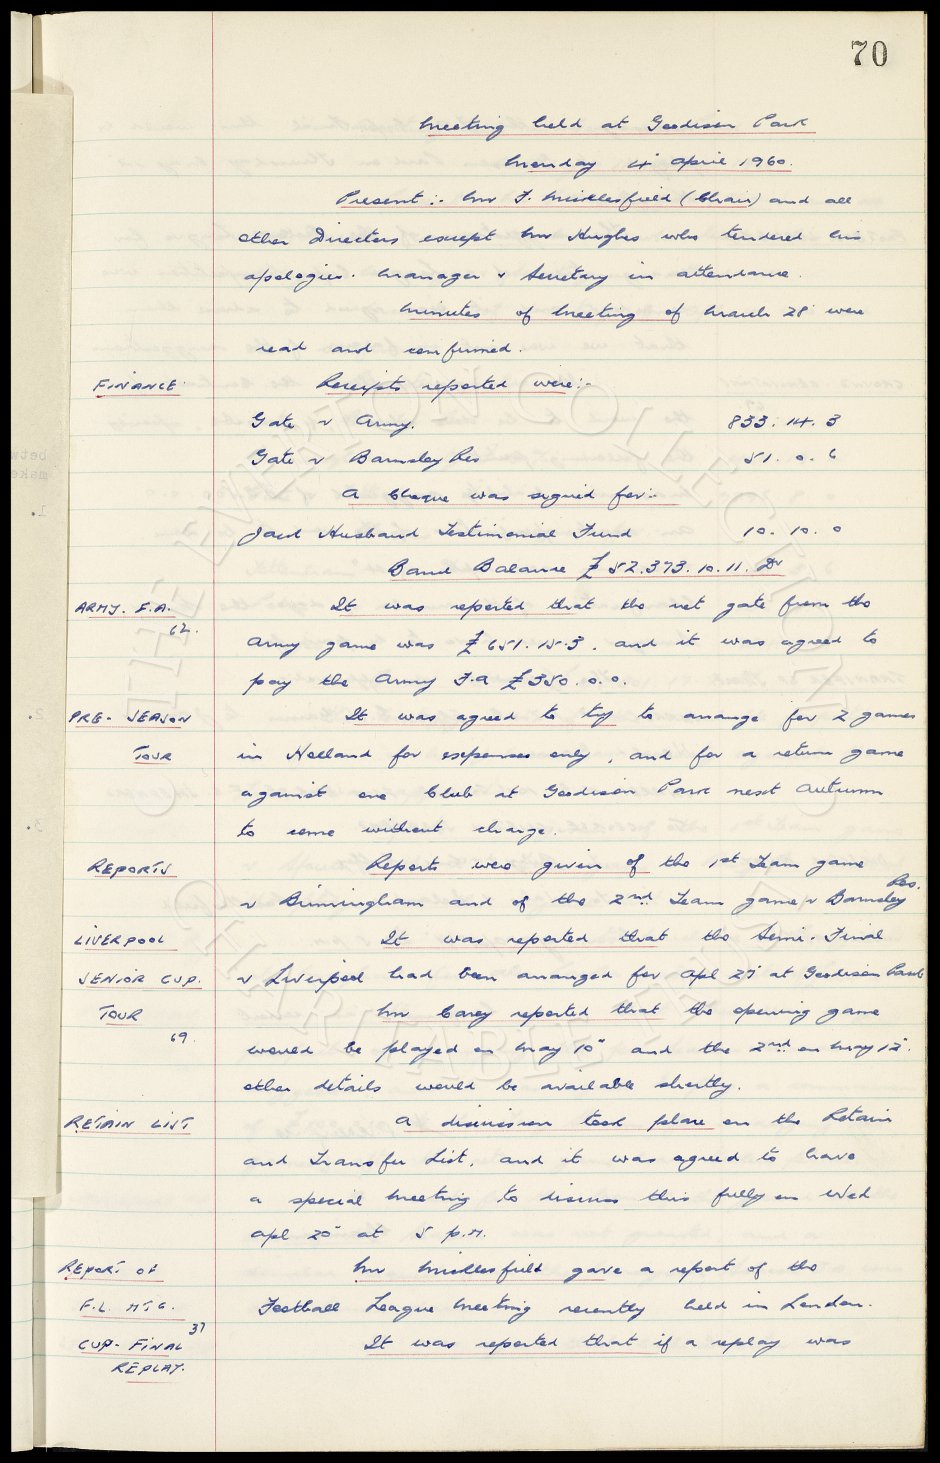 70
Meeting held at Goodison Park
Monday 4" April 1960.
Present:- Mr F. Micklesfield (Chair) and all
other Directors except Mr Hughes who tendered his
apologies. Manager & Secretary in attendance.
Minutes of Meeting of March 28" were
read and confirmed.
FINANCE. Receipts reported were:-
Gate v Army. 833. 14. 3
Gate v Barnsley Res 51. 0. 6
A Cheque was signed for:-
Jack Husband Testimonial Fund 10. 10. 0
Bank Balance £52.373.10.11. Dr
ARMY. F.A. It was reported that the net gate from the
62. Army game was £651.15.3. and it was agreed to
pay the Army F.A £350.0.0.
PRE-SEASON It was agreed to try to arrange for 2 games
TOUR in Holland for expenses only, and for a return game
against one Club at Goodison Park next Autumn
to come without charge.
REPORTS Reports were given of the 1st Team game
v Birmingham and of the 2nd Team game v Barnsley Res.
LIVERPOOL It was reported that the Semi-Final
SENIOR CUP. v Liverpool had been arranged for Apl 27" at Goodison Park
TOUR Mr Carey reported that the opening game
69. would be played on May 10" and the 2nd on May 12".
Other details would be available shortly.
RETAIN LIST A discussion took place on the Retain
and Transfer List, and it was agreed to have
a special Meeting to discuss this fully on Wed
Apl 20" at 5 p.m.
REPORT OF Mr Micklesfield gave a report of the
F.L. MTG. Football League Meeting recently held in London.
CUP-FINAL 37 It was reported that if a replay was
REPLAY.